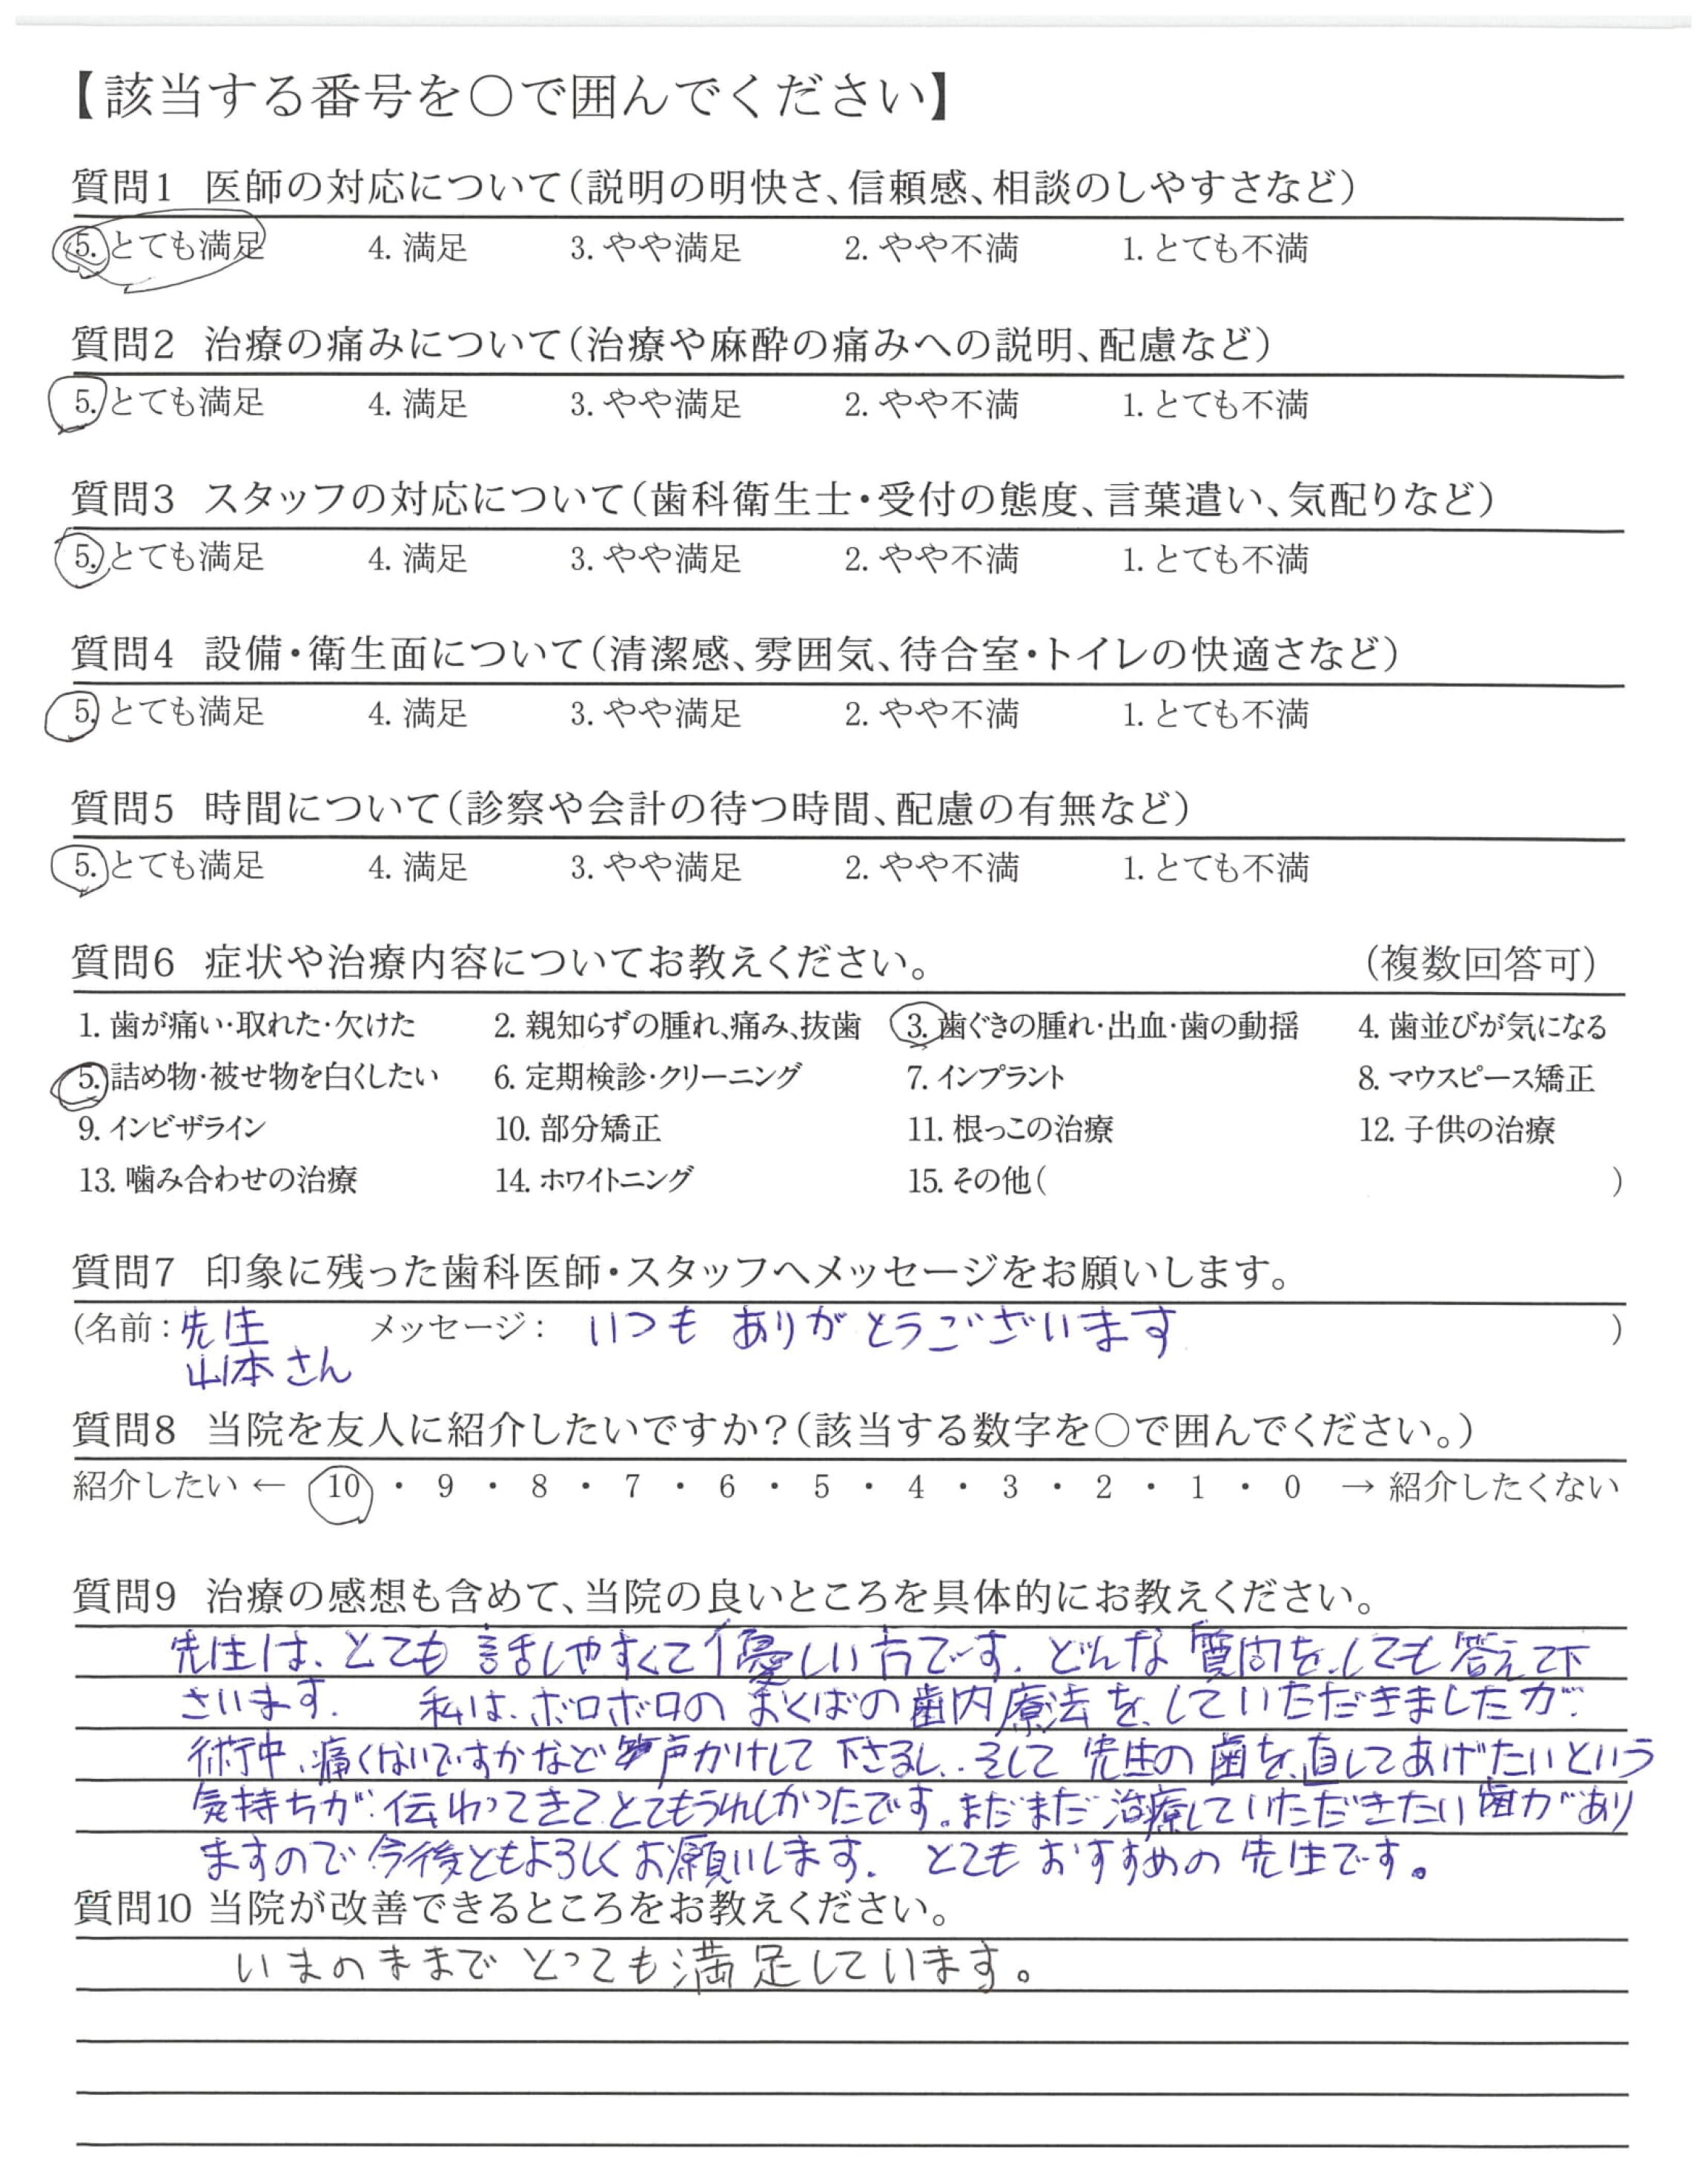 【該当する番号を○で囲んでください】
質問1 医師の対応について(説明の明快さ、信頼感、相談のしやすさなど)
5. とても満足 4. 満足 3. やや満足 2. やや不満 1. とても不満
質問2 治療の痛みについて(治療や麻酔の痛みへの説明、配慮など)
5. とても満足 4. 満足 3. やや満足 2. やや不満 1. とても不満
質問3 スタッフの対応について(歯科衛生士・受付の態度、言葉遣い、気配りなど)
5. とても満足 4. 満足 3. やや満足 2. やや不満 1. とても不満
質問4 設備・衛生面について(清潔感、雰囲気、待合室・トイレの快適さなど)
5. とても満足 4. 満足 3. やや満足 2. やや不満 1. とても不満
質問5 時間について(診察や会計の待つ時間、配慮の有無など)
5. とても満足 4. 満足 3. やや満足 2. やや不満 1. とても不満
質問6 症状や治療内容についてお教えください。 (複数回答可)
1. 歯が痛い・取れた・欠けた 2. 親知らずの腫れ、痛み、抜歯 3. 歯ぐきの腫れ・出血・歯の動揺 4. 歯並びが気になる
5. 詰め物・被せ物を白くしたい 6. 定期検診・クリーニング 7. インプラント 8. マウスピース矯正
9. インビザライン 10. 部分矯正 11. 根っこの治療 12. 子供の治療
13. 噛み合わせの治療 14. ホワイトニング 15. その他( )
質問7 印象に残った歯科医師・スタッフへメッセージをお願いします。
(名前：先生 メッセージ： いつも ありがとうございます )
山本さん
質問8 当院を友人に紹介したいですか？(該当する数字を○で囲んでください。)
紹介したい ← 10 ・ 9 ・ 8 ・ 7 ・ 6 ・ 5 ・ 4 ・ 3 ・ 2 ・ 1 ・ 0 → 紹介したくない
質問9 治療の感想も含めて、当院の良いところを具体的にお教えください。
先生は、とても 話しやすくて優しい方です. どんな 質問を.しても答えて下
さいます. 私は.ボロボロの おくばの歯内療法を.していただきましたが.
術中、痛くないですかなど 声かけして 下さるし.. そして 先生の 歯を.直してあげたいという
気持ちが.伝わってきてとてもうれしかったです。まだまだ 治療していただきたい歯があり
ますので 今後ともよろしく お願いします. とても おすすめの 先生です。
質問10 当院が改善できるところをお教えください。
いまのままで とっても満足しています。